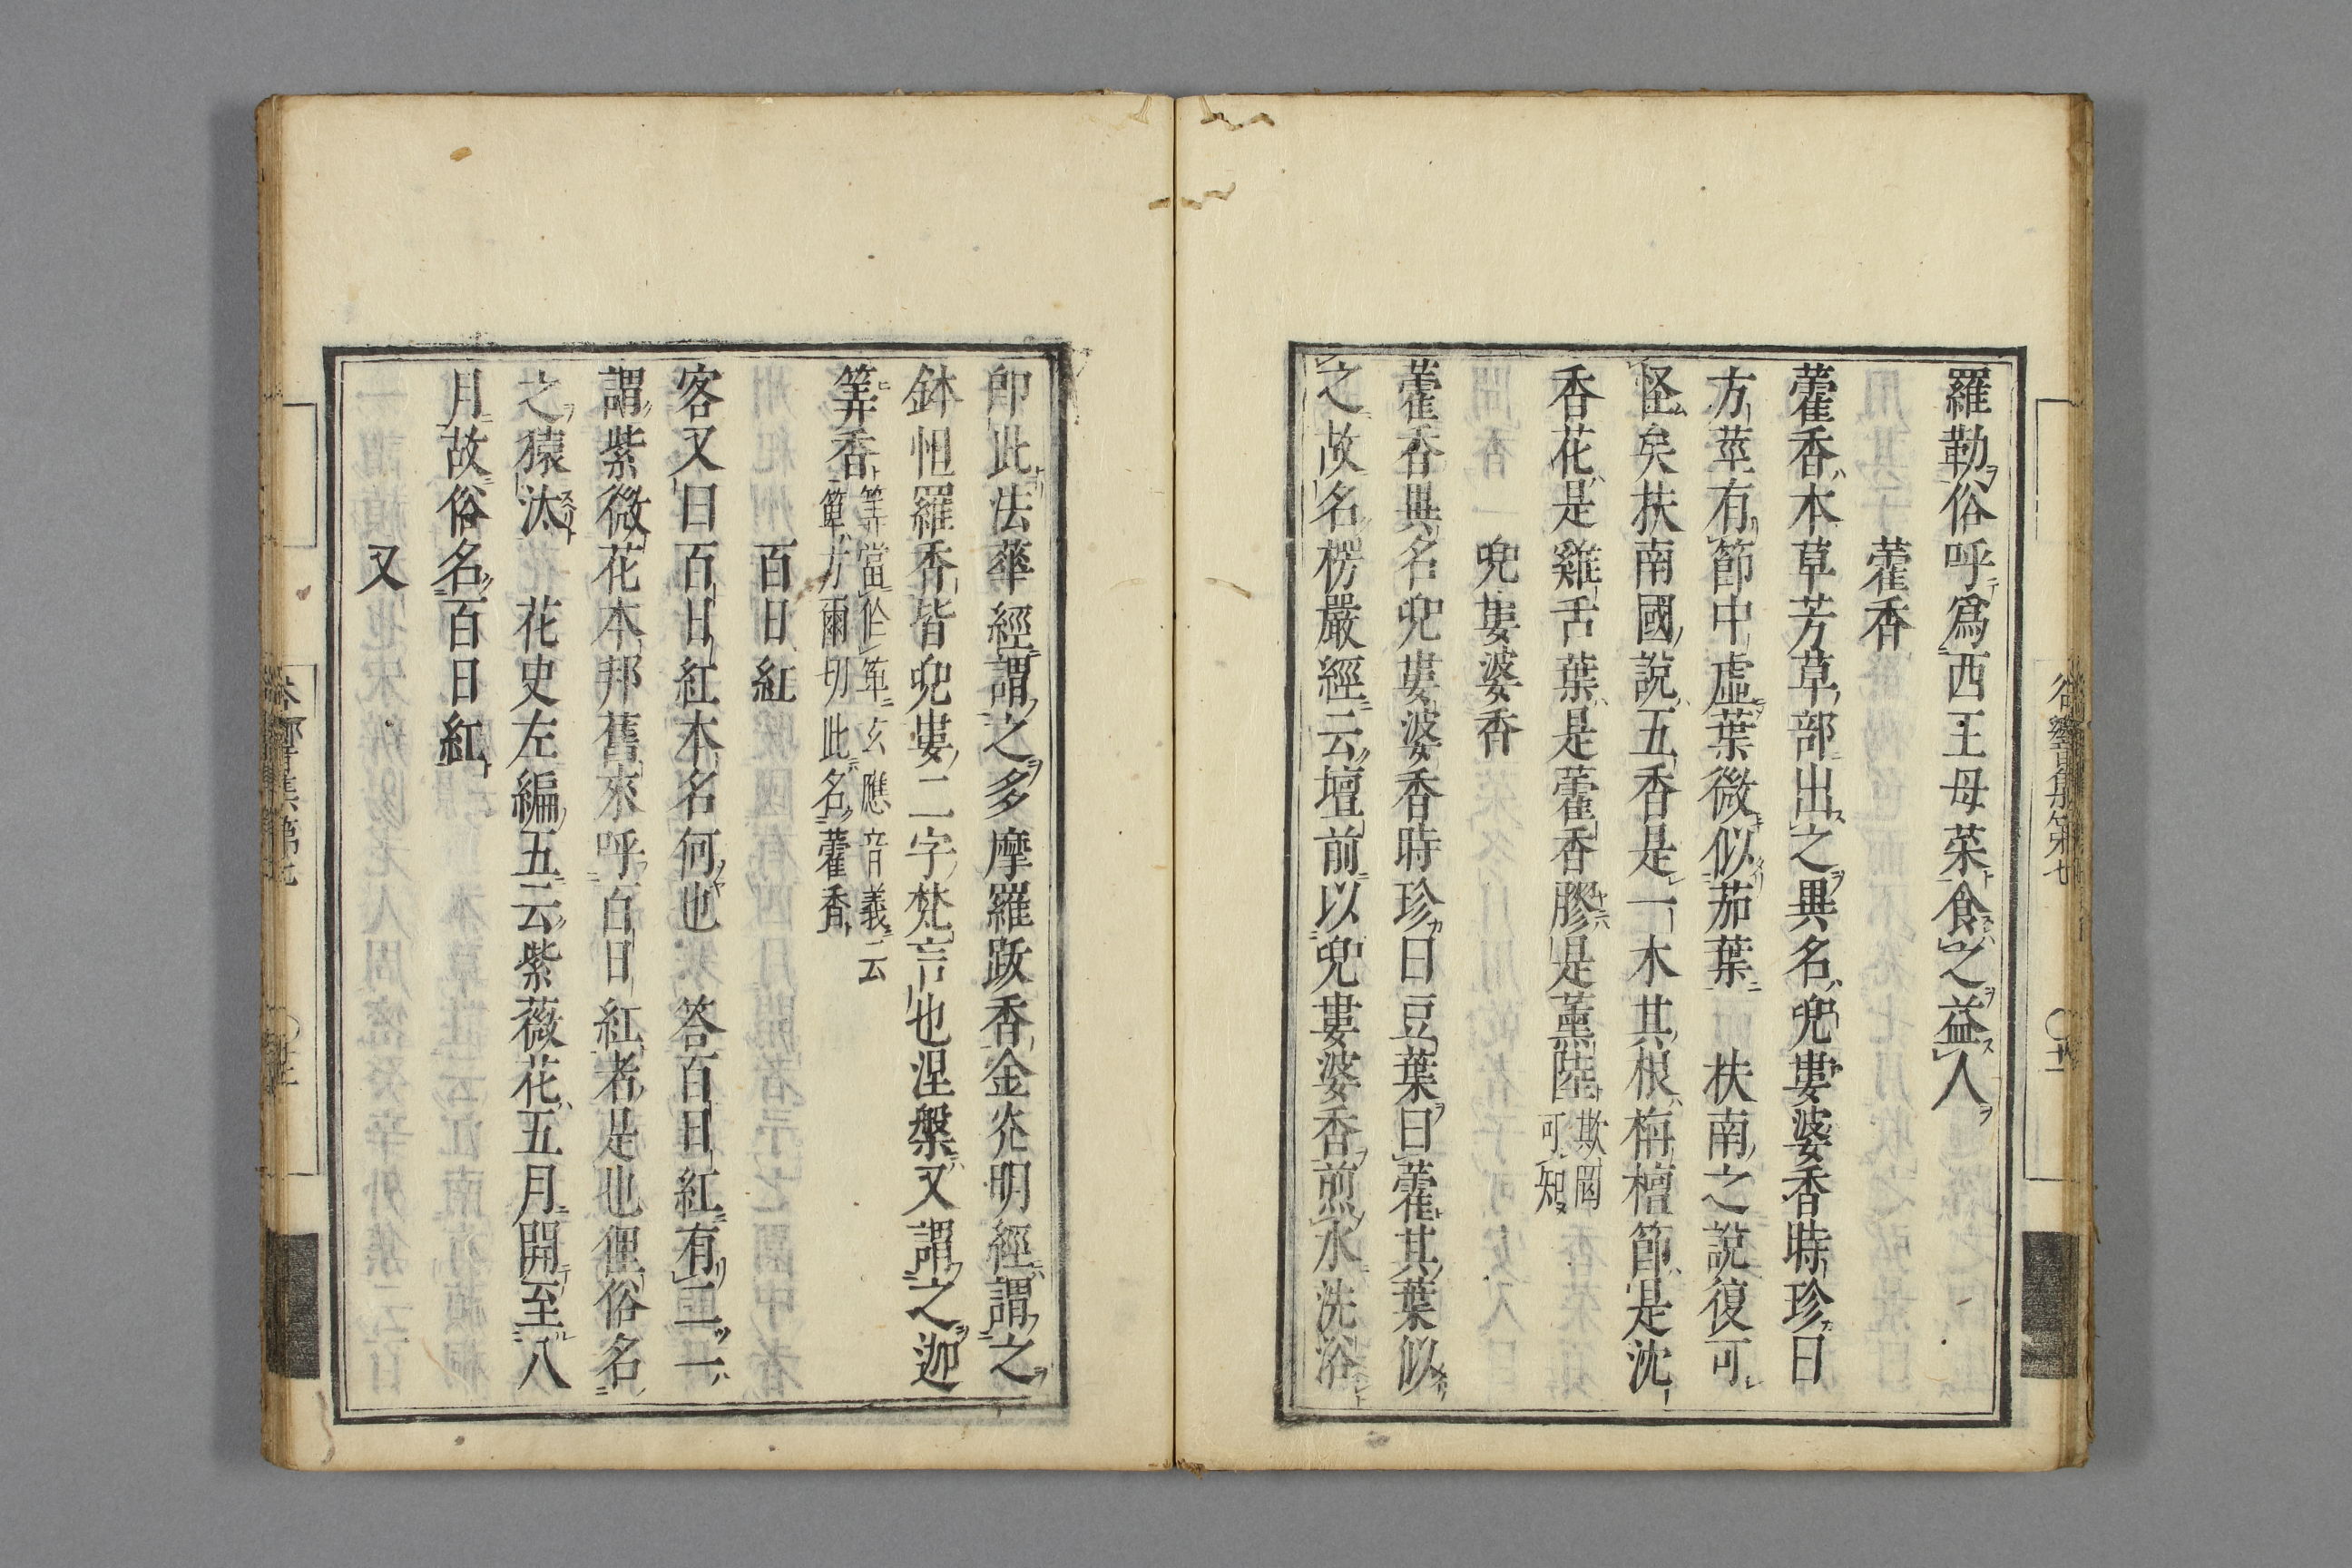 羅勒俗呼爲西王母菜食之益人
藿香
藿香本草芳草部出之異名兜婁婆香時珍曰
方莖有節中虛葉微似茄葉　扶南之說復可
怪矣扶南國說五香是一木其根栴檀節是沈
香花是雞舌葉是藿香膠是薰陸
欺罔
可知
兜婁婆香
藿香異名兜婁婆香時珍曰豆葉曰藿其葉似
之故名楞嚴經云壇前以兜婁婆香煎水洗浴
即此法華經謂之多摩羅跋香金光明經謂之
鉢怛羅香皆兜婁二字梵言也涅槃又謂之迦
筭香
筭當作箄玄應音義云
箄方爾切此名藿香
百日紅
客又曰百日紅本名何也　答百日紅有二一
謂紫微花本邦舊來呼百日紅者是也俚俗名
之猿汰　花史左編五云紫薇花五月開至八
月故俗名百日紅
又
谷響集第七
谷響集第七